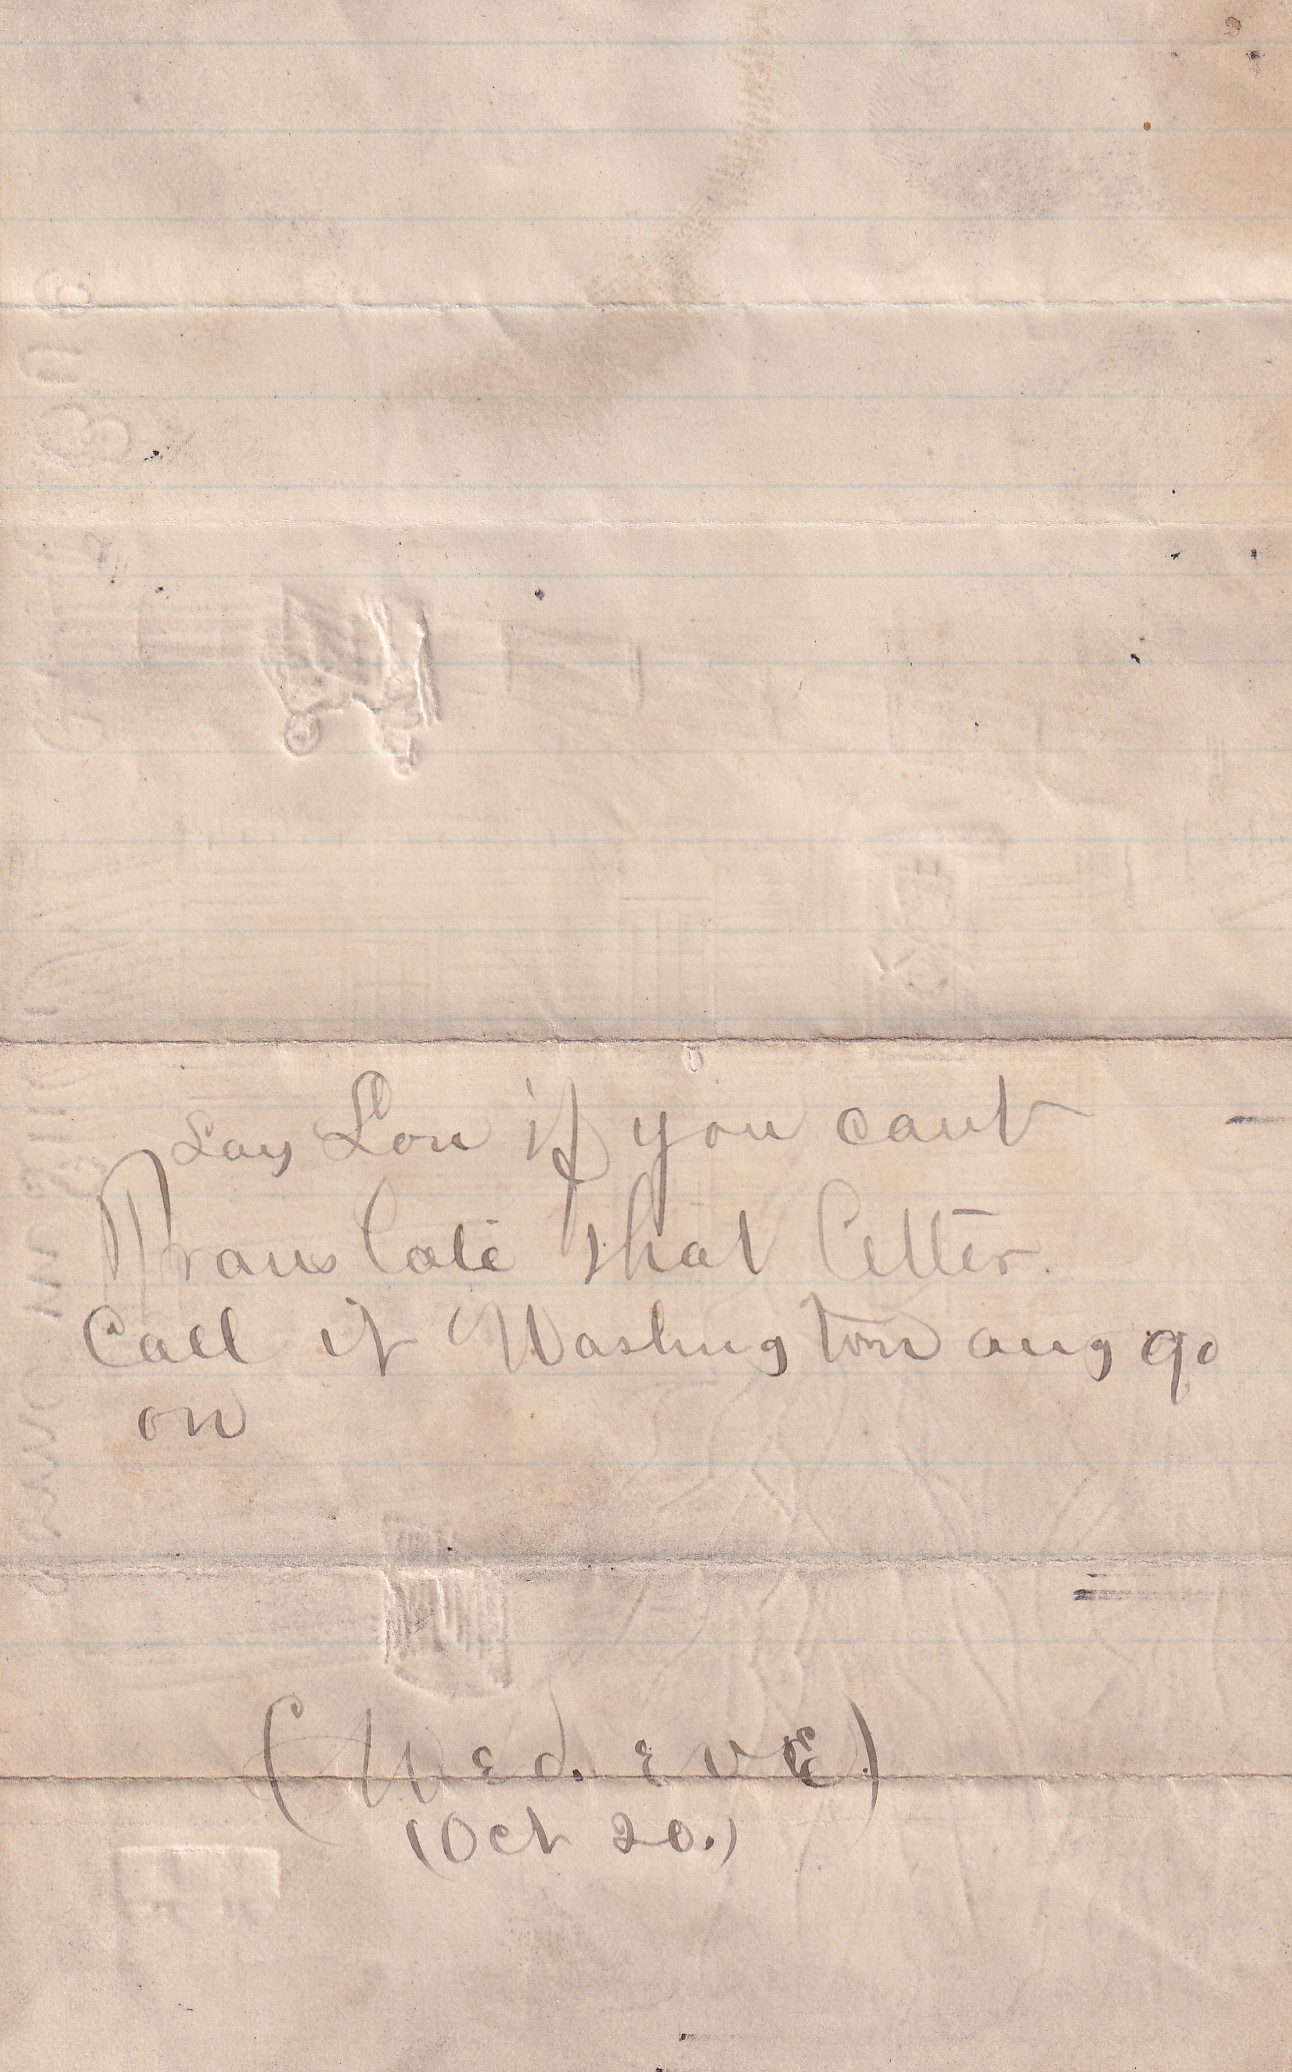 Say Lou if you cant
Translate that letter.
Call it Washington and go
on
(Wed. eve.)
(Oct 20.)